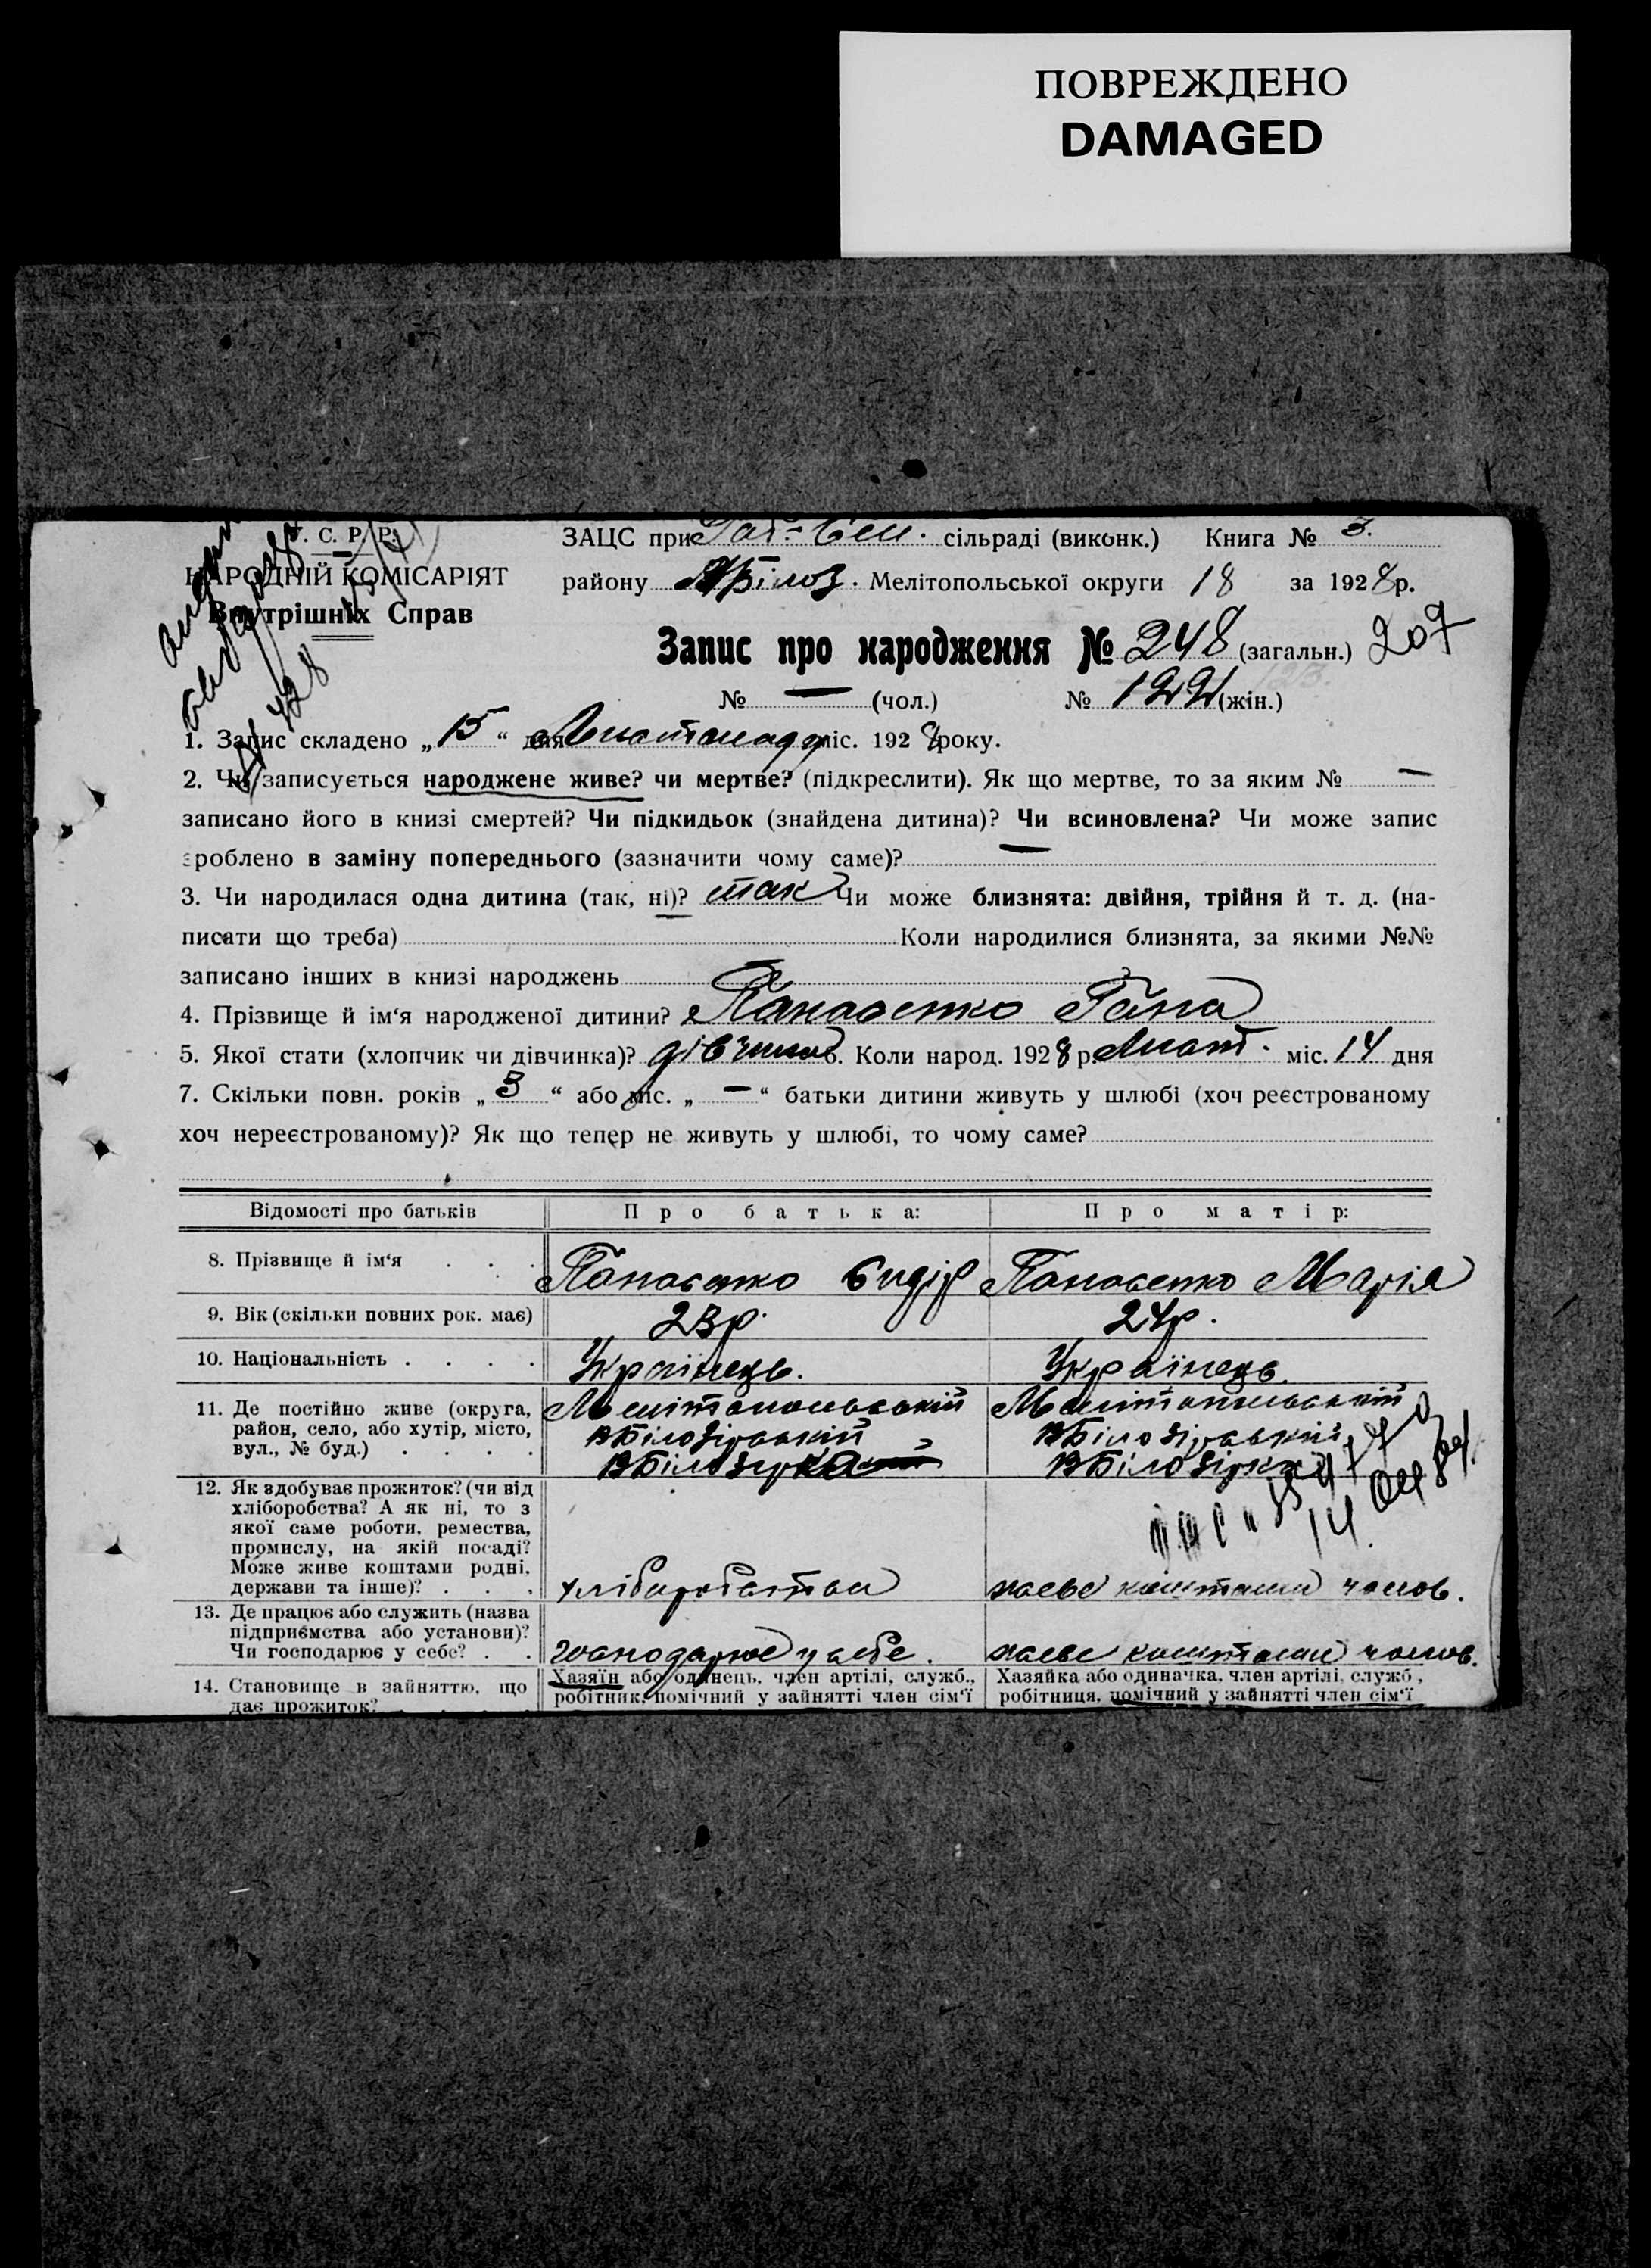 ПОВРЕЖДЕНО
DAMAGED
С. Р. Р.
НАРОДНІЙ КОМІСАРІЯТ
Внутрішніх Справ
ЗАЦС при сільраді (виконк.) Книга № 3.
району Мелітопольської округи 18 за 1928 р.
Запис про народження № 248 (загальн.) 207
№ — (чол.) № 122 (жін.)
1. Запис складено „15“ дня Листопаду міс. 1928 року.
2. Чи записується народжене живе? чи мертве? (підкреслити). Як що мертве, то за яким № —
записано його в книзі смертей? Чи підкидьок (знайдена дитина)? Чи всиновлена? Чи може запис
зроблено в заміну попереднього (зазначити чому саме)? —
3. Чи народилася одна дитина (так, ні)? так Чи може близнята: двійня, трійня й т. д. (на-
писати що треба) Коли народилися близнята, за якими №№
записано інших в книзі народжень
4. Прізвище й ім‘я народженої дитини? Панасенко Гана
5. Якої стати (хлопчик чи дівчинка)? дівчина 6. Коли народ. 1928 р. Лист. міс. 14 дня
7. Скільки повн. років „3“ або міс. „—“ батьки дитини живуть у шлюбі (хоч реєстрованому
хоч нереєстрованому)? Як що тепер не живуть у шлюбі, то чому саме?
Відомості про батьків Про батька: Про матір:
8. Прізвище й ім‘я . . . Панасенко Сидір Панасенко Марія
9. Вік (скільки повних рок. має) 23р. 24р.
10. Національність . . . . Українець. Українець.
11. Де постійно живе (округа, Мелітопольський Мелітопольський
район, село, або хутір, місто, ВБілозірський ВБілозірський
вул., № буд.) . . . . ВБілозірка ВБілозірка
12. Як здобуває прожиток? (чи від
хліборобства? А як ні, то з
якої саме роботи, ремества,
промислу, на якій посаді?
Може живе коштами родні,
держави та інше)? . . . хліборобства живе коштами чолов.
13. Де працює або служить (назва
підприємства або установи)?
Чи господарює у себе? . . господарює у себе. живе коштами чолов.
14. Становище в зайняттю, що Хазяїн або одинець, член артілі, служб., Хазяйка або одиначка, член артілі, служб.,
дає прожиток? робітник, помічний у зайнятті член сім‘ї робітниця, помічний у зайнятті член сім‘ї